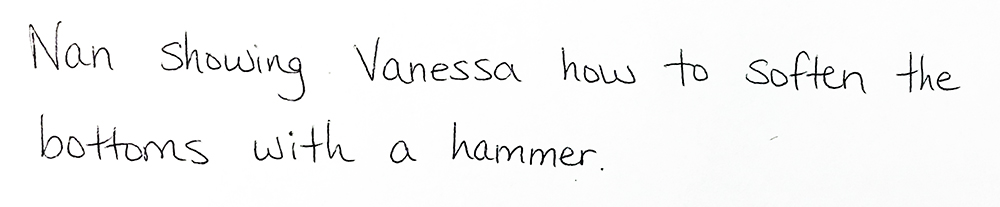 Nan showing Vanessa how to soften the
bottoms with a hammer.